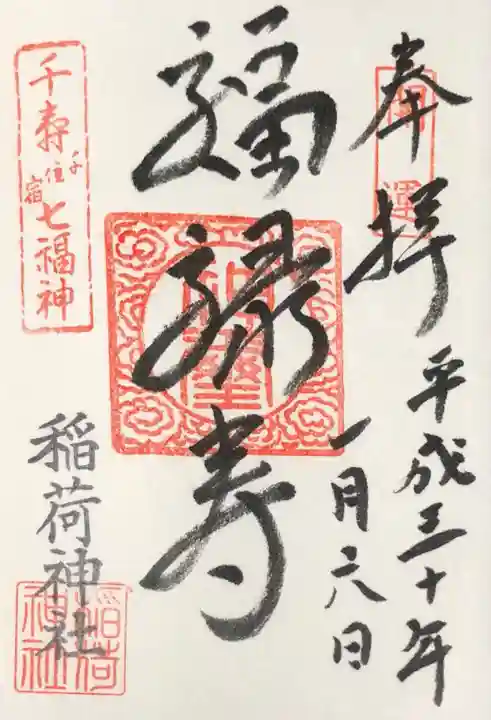 奉拝
開運
平成三十年
一月六日
福禄寿
神璽
千寿七福神
千住宿
稲荷神社
稲荷神社